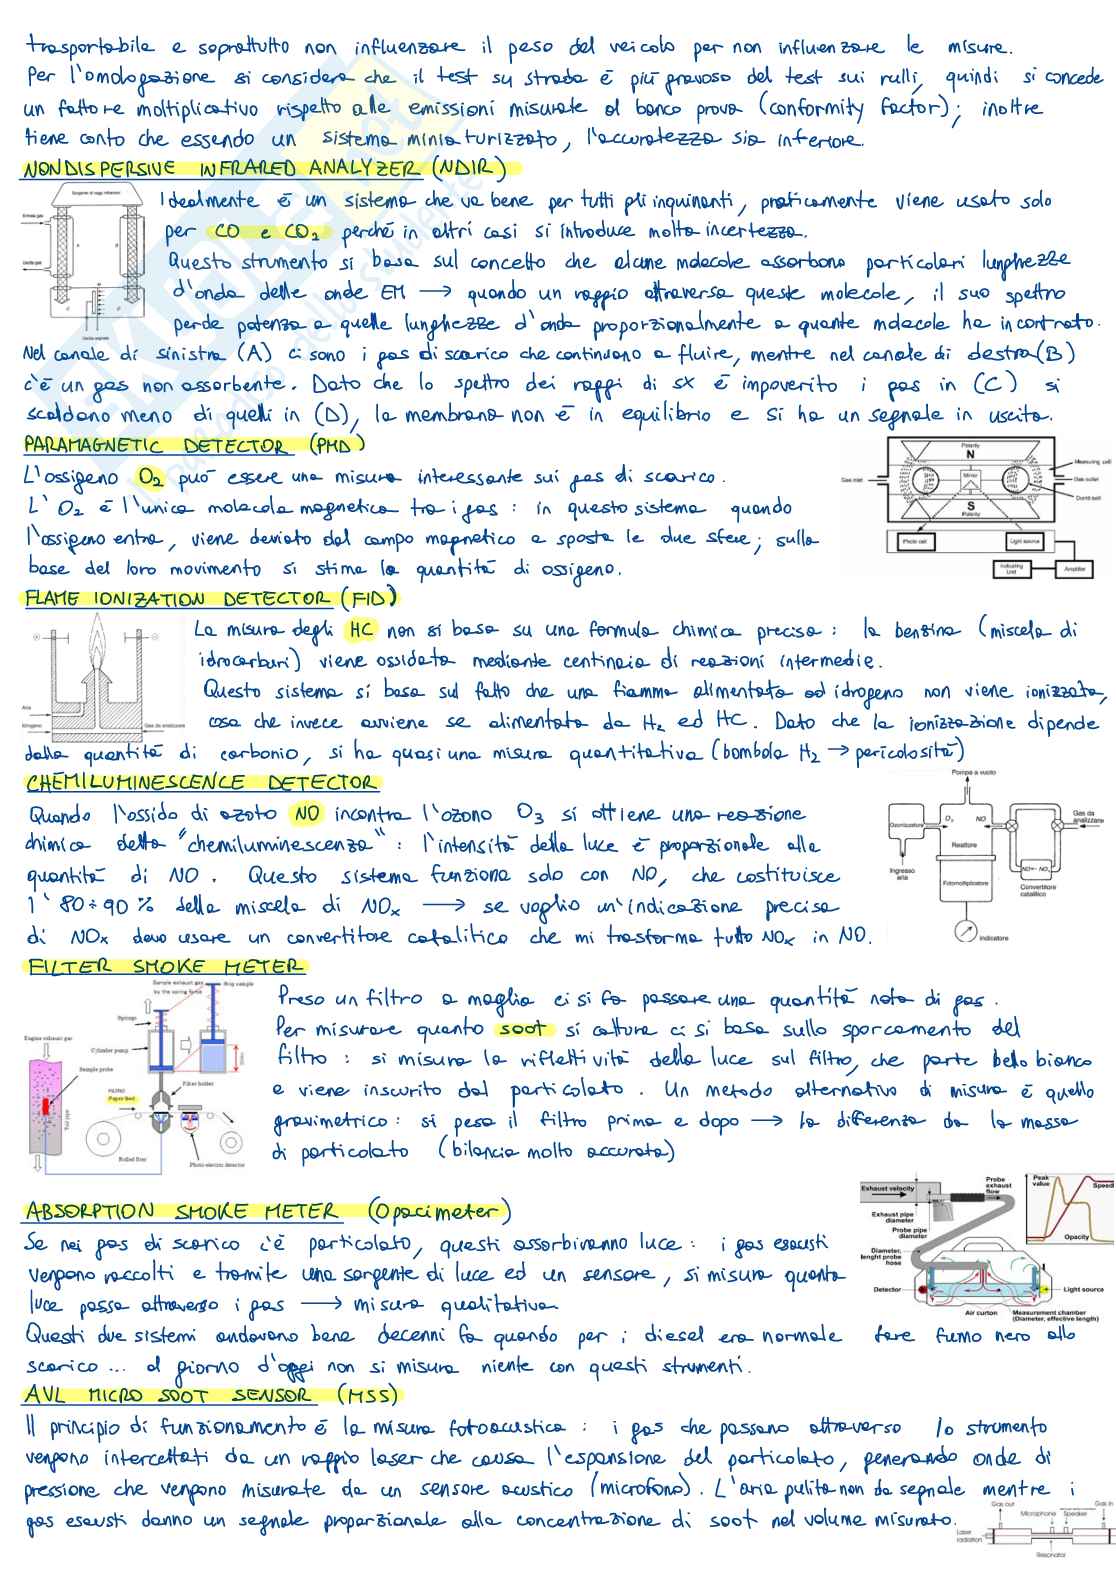 trasportabile e soprattutto non influenzare il peso del veicolo per non influenzare le misure.
Per l'omologazione si considera che il test su strada è più gravoso del test sui rulli, quindi si concede
un fattore moltiplicativo rispetto alle emissioni misurate al banco prova (conformity factor); inoltre
tiene conto che essendo un sistema miniaturizzato, l'accuratezza sia inferiore.
NONDISPERSIVE INFRARED ANALYZER (NDIR)
Sorgente di raggi infrarossi
Entrata gas
Uscita gas
A
B
C
D
Uscita segnale
Idealmente è un sistema che va bene per tutti gli inquinanti, praticamente viene usato solo
per CO e CO2 perché in altri casi si introduce molta incertezza.
Questo strumento si basa sul concetto che alcune molecole assorbono particolari lunghezze
d'onda delle onde EM → quando un raggio attraversa queste molecole, il suo spettro
perde potenza a quelle lunghezze d'onda proporzionalmente a quante molecole ha incontrato.
Nel canale di sinistra (A) ci sono i gas di scarico che continuano a fluire, mentre nel canale di destra (B)
c'è un gas non assorbente. Dato che lo spettro dei raggi di sx è impoverito i gas in (C) si
scaldano meno di quelli in (D), la membrana non è in equilibrio e si ha un segnale in uscita.
PARAMAGNETIC DETECTOR (PMD)
L'ossigeno O2 può essere una misura interessante sui gas di scarico.
L'O2 è l'unica molecola magnetica tra i gas: in questo sistema quando
l'ossigeno entra, viene deviato dal campo magnetico e sposta le due sfere; sulla
base del loro movimento si stima la quantità di ossigeno.
Polarity
N
Mirror
S
Polarity
Measuring cell
Gas inlet
Gas outlet
Dumb bell
Photo cell
Light source
Indicating Unit
Amplifier
FLAME IONIZATION DETECTOR (FID)
Aria
Idrogeno
Gas da analizzare
La misura degli HC non si basa su una formula chimica precisa: la benzina (miscela di
idrocarburi) viene ossidata mediante centinaia di reazioni intermedie.
Questo sistema si basa sul fatto che una fiamma alimentata ad idrogeno non viene ionizzata,
cosa che invece avviene se alimentata da H2 ed HC. Dato che la ionizzazione dipende
dalla quantità di carbonio, si ha quasi una misura quantitativa (bombola H2 → pericolosità)
CHEMILUMINESCENCE DETECTOR
Quando l'ossido di azoto NO incontra l'ozono O3 si ottiene una reazione
chimica detta "chemiluminescenza": l'intensità della luce è proporzionale alla
quantità di NO. Questo sistema funziona solo con NO, che costituisce
l'80÷90% della miscela di NOx → se voglio un'indicazione precisa
di NOx devo usare un convertitore catalitico che mi trasforma tutto NOx in NO.
Pompa a vuoto
Ozonizzatore
O3
NO
Gas da analizzare
Reattore
NO← NOx
Ingresso aria
Fotomoltiplicatore
Convertitore catalitico
Indicatore
FILTER SMOKE METER
Sample exhaust gas by the spring force
Ring sample
Springs
Engine exhaust gas
Cylinder pump
Sample probe
Filter holder
Paper feed
Tail pipe
Rolled filter
Photo electric detector
Preso un filtro a maglia ci si fa passare una quantità nota di gas.
Per misurare quanto soot si cattura ci si basa sullo sporcamento del
filtro: si misura la riflettività della luce sul filtro, che parte bello bianco
e viene inscurito dal particolato. Un metodo alternativo di misura è quello
gravimetrico: si pesa il filtro prima e dopo → la differenza dà la massa
di particolato (bilancia molto accurata)
ABSORPTION SMOKE METER (Opacimeter)
Se nei gas di scarico c'è particolato, questi assorbiranno luce: i gas esausti
vengono raccolti e tramite una sorgente di luce ed un sensore, si misura quanta
luce passa attraverso i gas → misura qualitativa
Questi due sistemi andavano bene decenni fa quando per i diesel era normale fare fumo nero allo
scarico... al giorno d'oggi non si misura niente con questi strumenti.
Exhaust velocity
Probe exhaust flow
Peak value
Speed
Exhaust pipe diameter
Probe pipe diameter
Diameter, lenght probe hose
Opacity
Detector
Light source
Air curton
Measurement chamber (Diameter, effective length)
AVL MICRO SOOT SENSOR (MSS)
Il principio di funzionamento è la misura fotoacustica: i gas che passano attraverso lo strumento
vengono intercettati da un raggio laser che causa l'espansione del particolato, generando onde di
pressione che vengono misurate da un sensore acustico (microfono). L'aria pulita non da segnale mentre i
gas esausti danno un segnale proporzionale alla concentrazione di soot nel volume misurato.
Gas out
Gas in
Microphone
Speaker
Laser radiation
Resonator